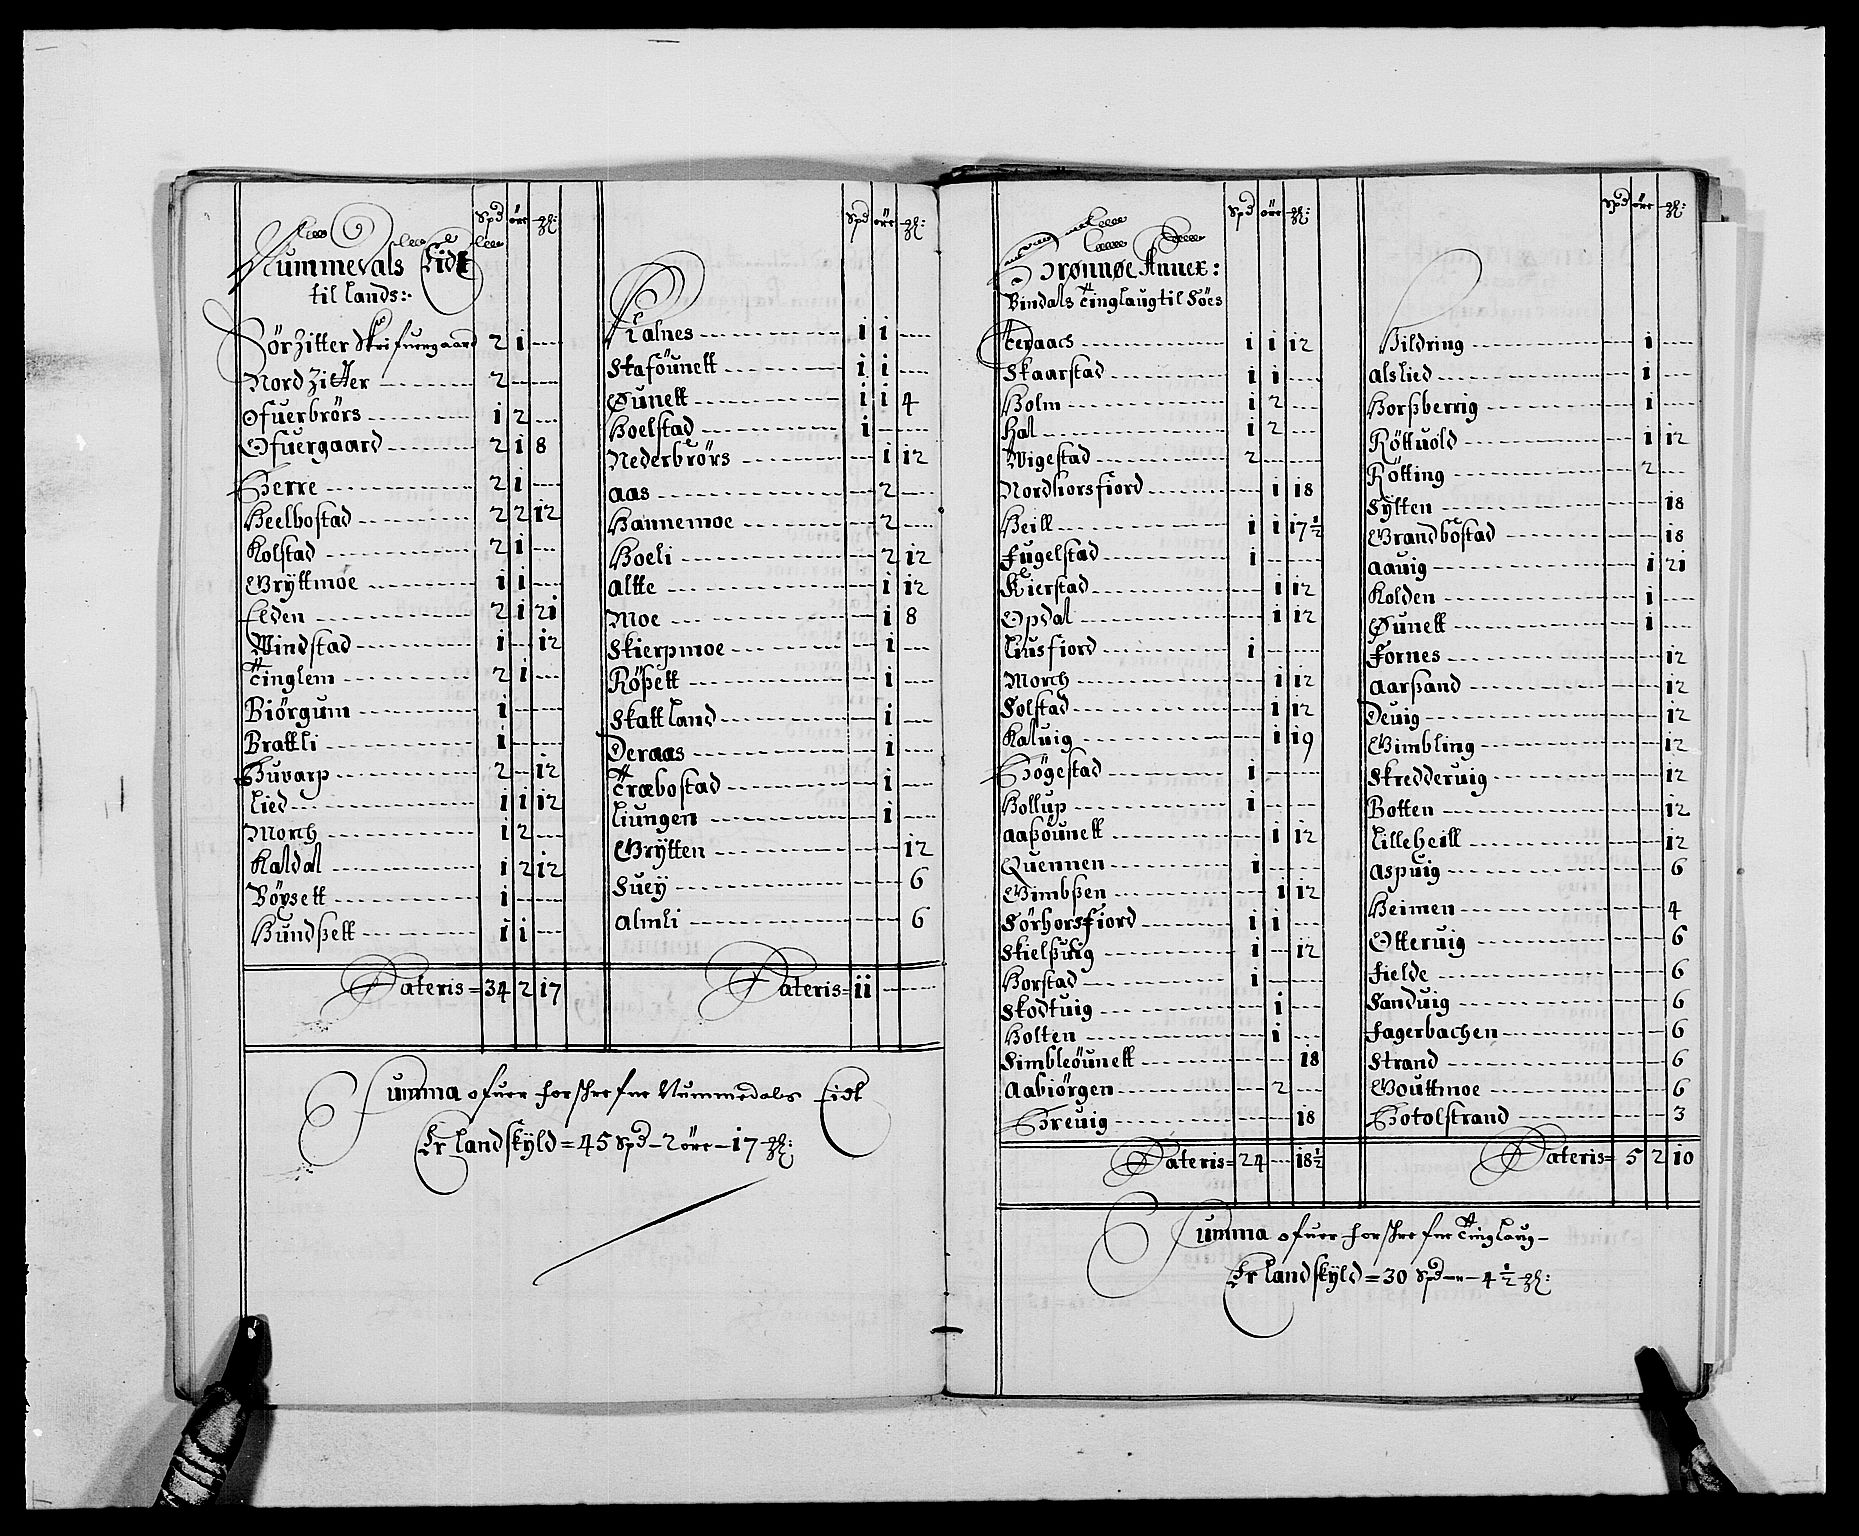 Spd öre ℳ:
Nummedals Eidt
til lands:
Sörzitter Skrifuergaard 2 1
Nord Zitter 2
Ofuerbrörs 1 2
Ofuergaard 2 1 8
Herre 2 1
Heelbostad 2 2 12
Kolstad 2 1
Grÿttmoe 1 1
Elden 2 1 21
Windstad 1 12
Tinglem 2 1
Biörgum 1
Brattli 1
Huvarp 2 12
Lied 1 1 12
Morch 1 2
Kaldal 1 2 12
Böysett 1
Hundßett 1 1
Lateris = 34 2 17
Spd öre ℳ:
Kialnes 1 1
Staföunett 1 1
Øunett 1 1 4
Hoelstad 1
Nederbrörs 1 12
Aas 2
Hannemoe 2
Hoeli 2 12
Altte 1 12
Moe 1 8
Skierpmoe 1
Rößett 1
Skattland 1
Deraas 1
Træbostad 1
Liungen 1
Grÿtten 12
Suey 6
Almli 6
Lateris = 11
Summa ofuer forschrefne Nummedals Eidt
Er landskÿld = 45 Spd – 2 öre – 17 ℳ:
Spd öre ℳ:
Brønnøe Annex:
Bindals Tinglaug til Söes
Teraacs 1 1 12
Skaarstad 1 1
Holm 1 2
Hal 1 2
Wigestad 2
Nordhorsfiord 1 18
Heill 1 1 17½
Fugelstad 1
Kierstad 1 12
Opdal 1 12
Liusfiord 1
Morch 1 12
Solstad 1 12
Kaluig 1 19
Högestad 1
Hollup 1
Aaßöunett 1 12
Quennen 1
Gimbßen 1 12
Sörhorsfiord 1 1
Skielßuig 1 12
Horstad 1
Skodtuig 1
Holten 1
Simbleöunett 18
Aabiörgen 2
Breuig 18
Lateris = 24 18½
Spd öre ℳ:
Hildring 1
Alslied 1
Horßberrig 1
Röttuold 1 12
Rötting 2
Sÿtten 18
Grandbostad 18
Aauig 1 21
Kolden 1
Øunett 1
Fornes 12
Aarßand 12
Deuig 12
Gimbling 12
Skredderuig 12
Botten 12
Lilleheill 12
Aspuig 6
Heimen 4
Otteruig 6
Fielde 6
Sanduig 6
Fagerbachen 6
Strand 6
Gouttmoe 6
Hotolstrand 3
Lateris = 5 2 10
Summa ofuer forschrefne Tinglaug –
Er landskÿld = 30 Spd – 4½ ℳ: